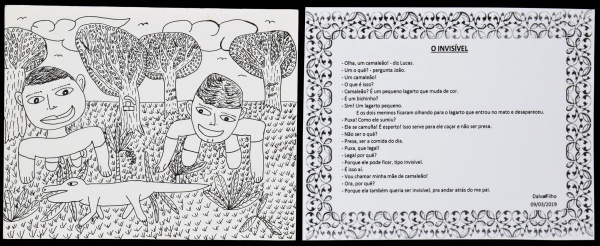 O INVISÍVEL
- Olha, um camaleão! - diz Lucas.
- Um o quê? - pergunta João.
- Um camaleão!
- O que é isso?
- Camaleão? É um pequeno lagarto que muda de cor.
- É um bichinho?
- Sim! Um lagarto pequeno.
E os dois meninos ficaram olhando para o lagarto que entrou no mato e desapareceu.
- Puxa! Como ele sumiu?
- Ele se camufla! É esperto! Isso serve para ele caçar e não ser presa.
- Não ser o quê?
- Presa, ser a comida do dia.
- Puxa, que legal!
- Legal por quê?
- Porque ele pode ficar, tipo invisível.
- É isso aí.
- Vou chamar minha mãe de camaleão!
- Ora, por quê?
- Porque ela também queria ser invisível, pra andar atrás do me pai.
Dalva Filho
09/03/2019